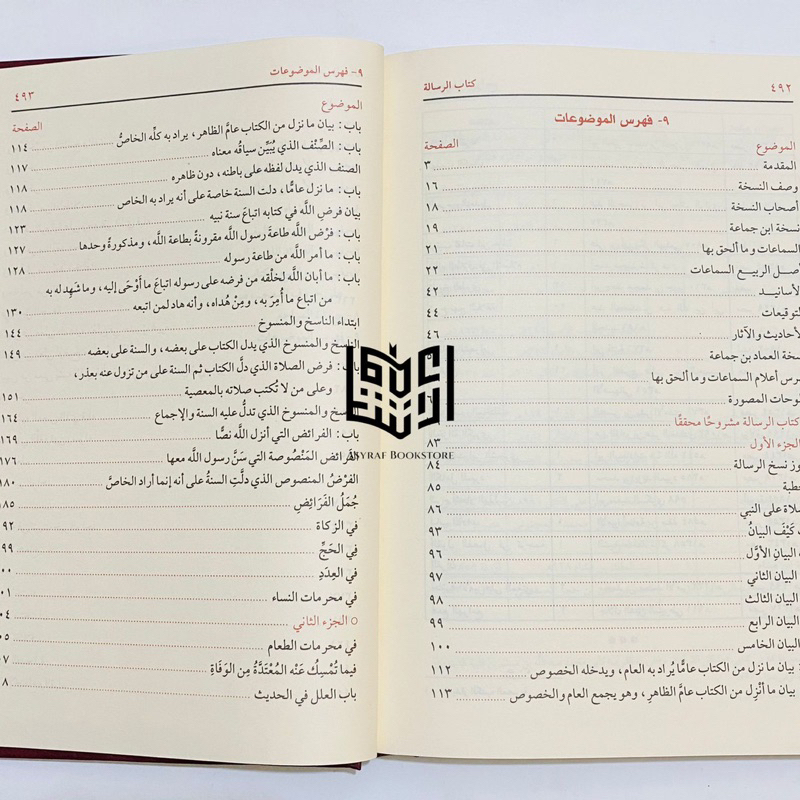 كتاب الرسالة ٤٩٢
٩- فهرس الموضوعات
الموضوع الصفحة
المقدمة ٣
وصف النسخة ١٦
أصحاب النسخة ١٨
نسخة ابن جماعة ١٩
السماعات وما ألحق بها ٢١
أصل الربيع السماعات ٢٢
الأسانيد ٤٢
التوقيعات ٤٤
الأحاديث والآثار ٤٦
نسخة العماد بن جماعة
فهرس أعلام السماعات وما ألحق بها
لوحات المصورة
كتاب الرسالة مشروحًا محققًا
الجزء الأول ٨٣
رموز نسخ الرسالة ٨٤
خطبة ٨٥
الصلاة على النبي ٨٦
كَيْفَ البيانُ ٩٣
البيانِ الأوَّل ٩٦
البيان الثاني ٩٧
البيان الثالث ٩٨
البيان الرابع ٩٩
البيان الخامس ١٠٠
بيان ما نزل من الكتاب عامًّا يُراد به العام، ويدخله الخصوص ١١٢
بيان ما أنْزِل من الكتاب عامَّ الظاهر، وهو يجمع العام والخصوص ١١٣
٩- فهرس الموضوعات ٤٩٣
الموضوع الصفحة
باب: بيان ما نزل من الكتاب عامَّ الظاهر، يراد به كلِّه الخاصُّ ١١٤
باب: الصِّنْف الذي يُبَيِّن سياقُه معناه ١١٧
الصنف الذي يدل لفظه على باطنه، دون ظاهره ١١٨
باب: ما نزل عامًّا، دلت السنة خاصة على أنه يراد به الخاص ١١٨
بيان فرضِ اللَّه في كتابه اتباعَ سنة نبيه ١٢٣
باب: فرْض اللَّه طاعةَ رسول اللَّه مقرونةً بطاعة اللَّه، ومذكورةً وحدها ١٢٧
باب: ما أمر اللَّه من طاعة رسوله ١٢٨
باب: ما أبان اللَّه لخلْقه من فرضه على رسوله اتباعَ ما أَوْحَى إليه، وما شَهِد له به
من اتباع ما أُمِرَ به، ومِنْ هُداه، وأنه هاد لمن اتبعه ١٣٠
ابتداء الناسخ والمنسوخ ١٤٤
الناسخ والمنسوخ الذي يدل الكتاب على بعضه، والسنة على بعضه ١٤٩
باب: فرض الصلاة الذي دلَّ الكتاب ثم السنة على من تزول عنه بعذر،
وعلى من لا تُكتب صلاته بالمعصية ١٥١
الناسخ والمنسوخ الذي تدلُّ عليه السنة والإجماع ١٦٤
باب: الفرائض التي أنزل اللَّه نصًّا ١٦٩
الفرائض المَنْصُوصة التي سَنَّ رسول اللَّه معها ١٧٦
الفَرْضُ المنصوص الذي دلَّتِ السنةُ على أنه إنما أراد الخاصَّ ١٨٠
جُمَلُ الفَرَائِضِ
في الزكاة
فِي الحَجِّ
في العِدَدِ
في محرمات النساء
○ الجزء الثاني
في محرمات الطعام
فيما تُمْسِكُ عَنْه المُعْتَدَّةُ مِنَ الوَفَاةِ
باب العلل في الحديث
ASYRAF BOOKSTORE